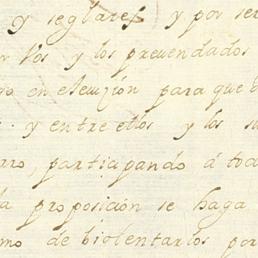 y seglares y por ser
por los y los prevendados
en elecuzion para que
y entre ellos y los
partizipando á to
la proposición se haga
mo de biolentarlos por